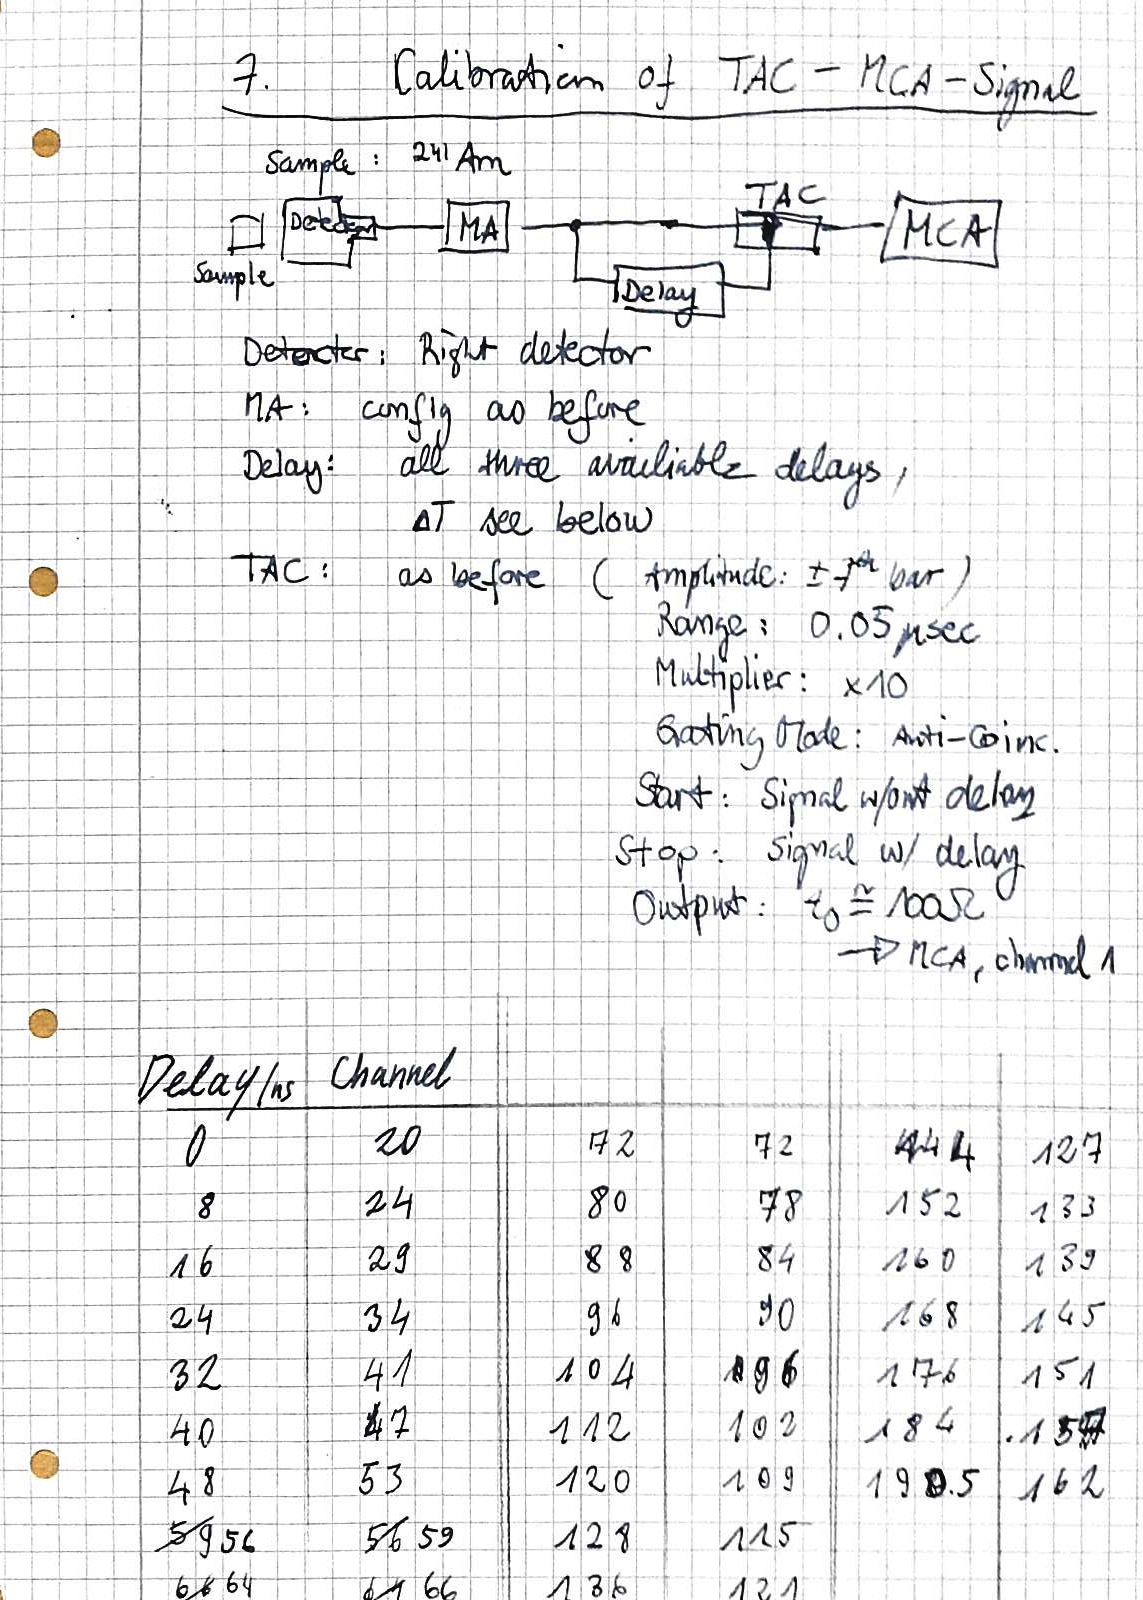 7. Calibration of TAC-MCA-Signal
Sample: ²⁴¹Am
TAC
Detector MA MCA
Sample
Delay
Detector: Right detector
MA: config as before
Delay: all three availiable delays,
ΔT see below
TAC: as before ( Amplitude: ± 7th bar )
Range: 0.05 μsec
Multiplier: x10
Gating Mode: Anti-Coinc.
Start: Signal w/out delay
Stop: Signal w/ delay
Output: z₀ ≅ 100Ω
→ MCA, channel 1
Delay/ns Channel
0 20 72 72 144 127
8 24 80 78 152 133
16 29 88 84 160 139
24 34 96 90 168 145
32 41 104 96 176 151
40 47 112 102 184 157
48 53 120 109 190.5 162
56 59 128 115
64 66 136 121